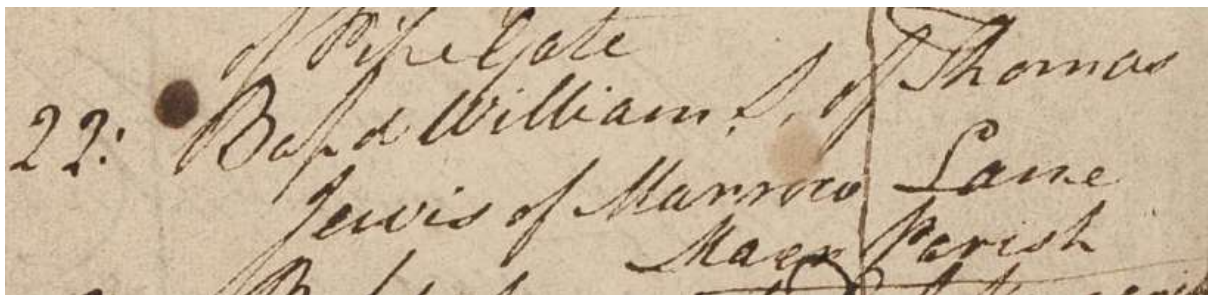 of Pipe Gate
22: Bapd William S. of Thomas
Jewis of Marrow Lane
Maer Parish